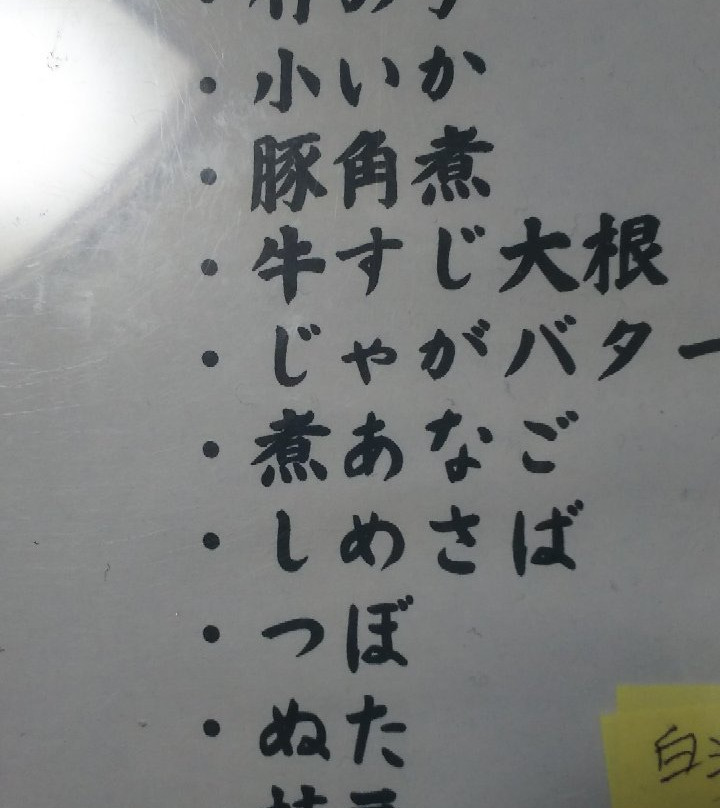 ・小いか
・豚角煮
・牛すじ大根
・じゃがバター
・煮あなご
・しめさば
・つぼ
・ぬた
白